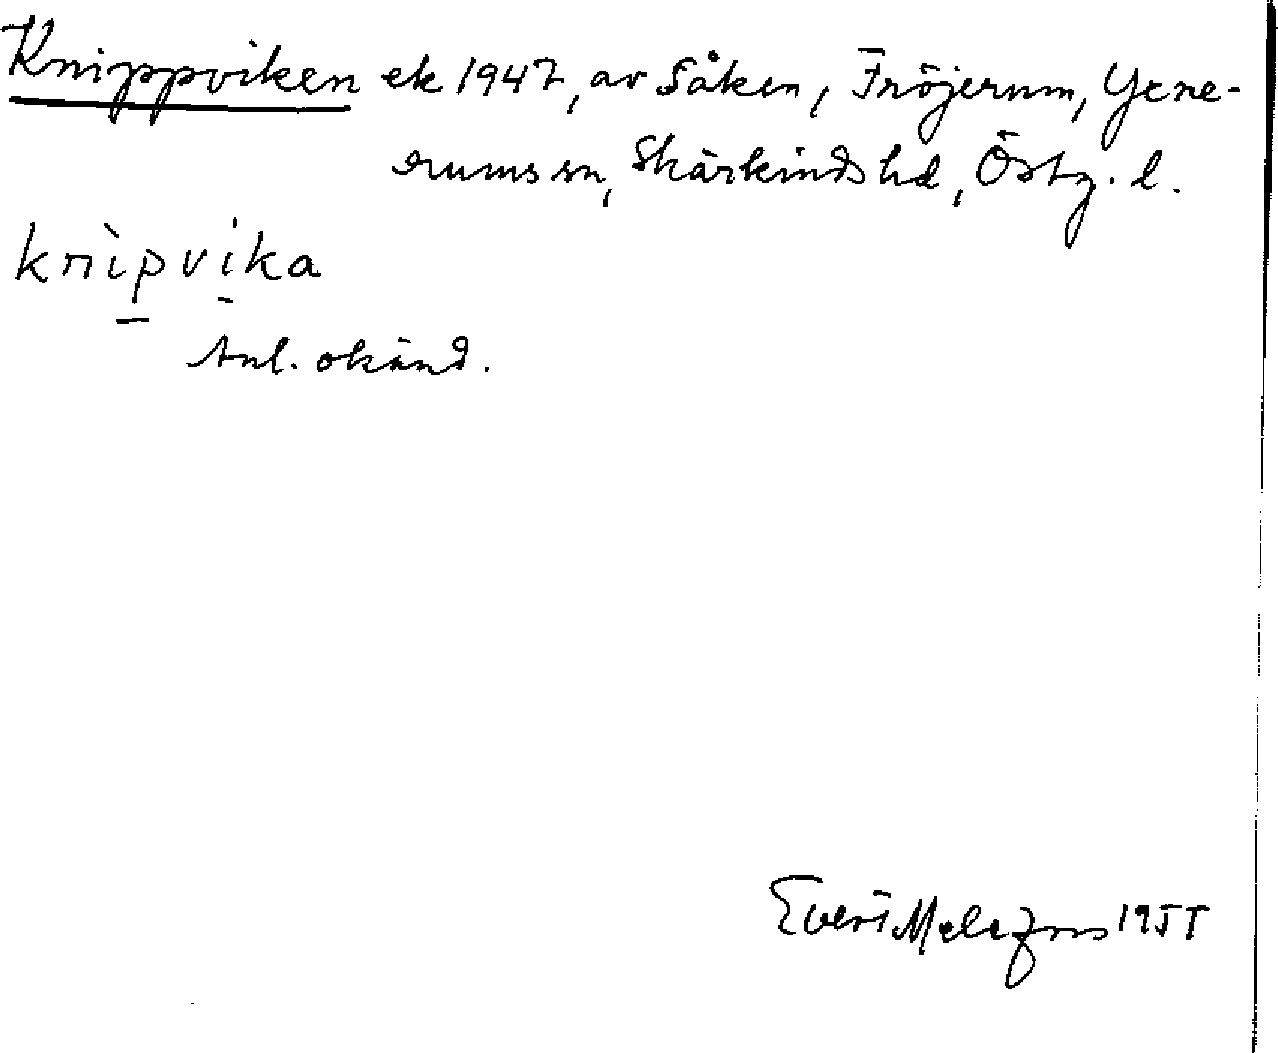 Knippviken ek 1947, av Såken, Fröjerum, Yxne-
rums sn, Skärkinds hd, Östg. l.
knìpvika
Anl. okänd.
Evert Melefors 1955